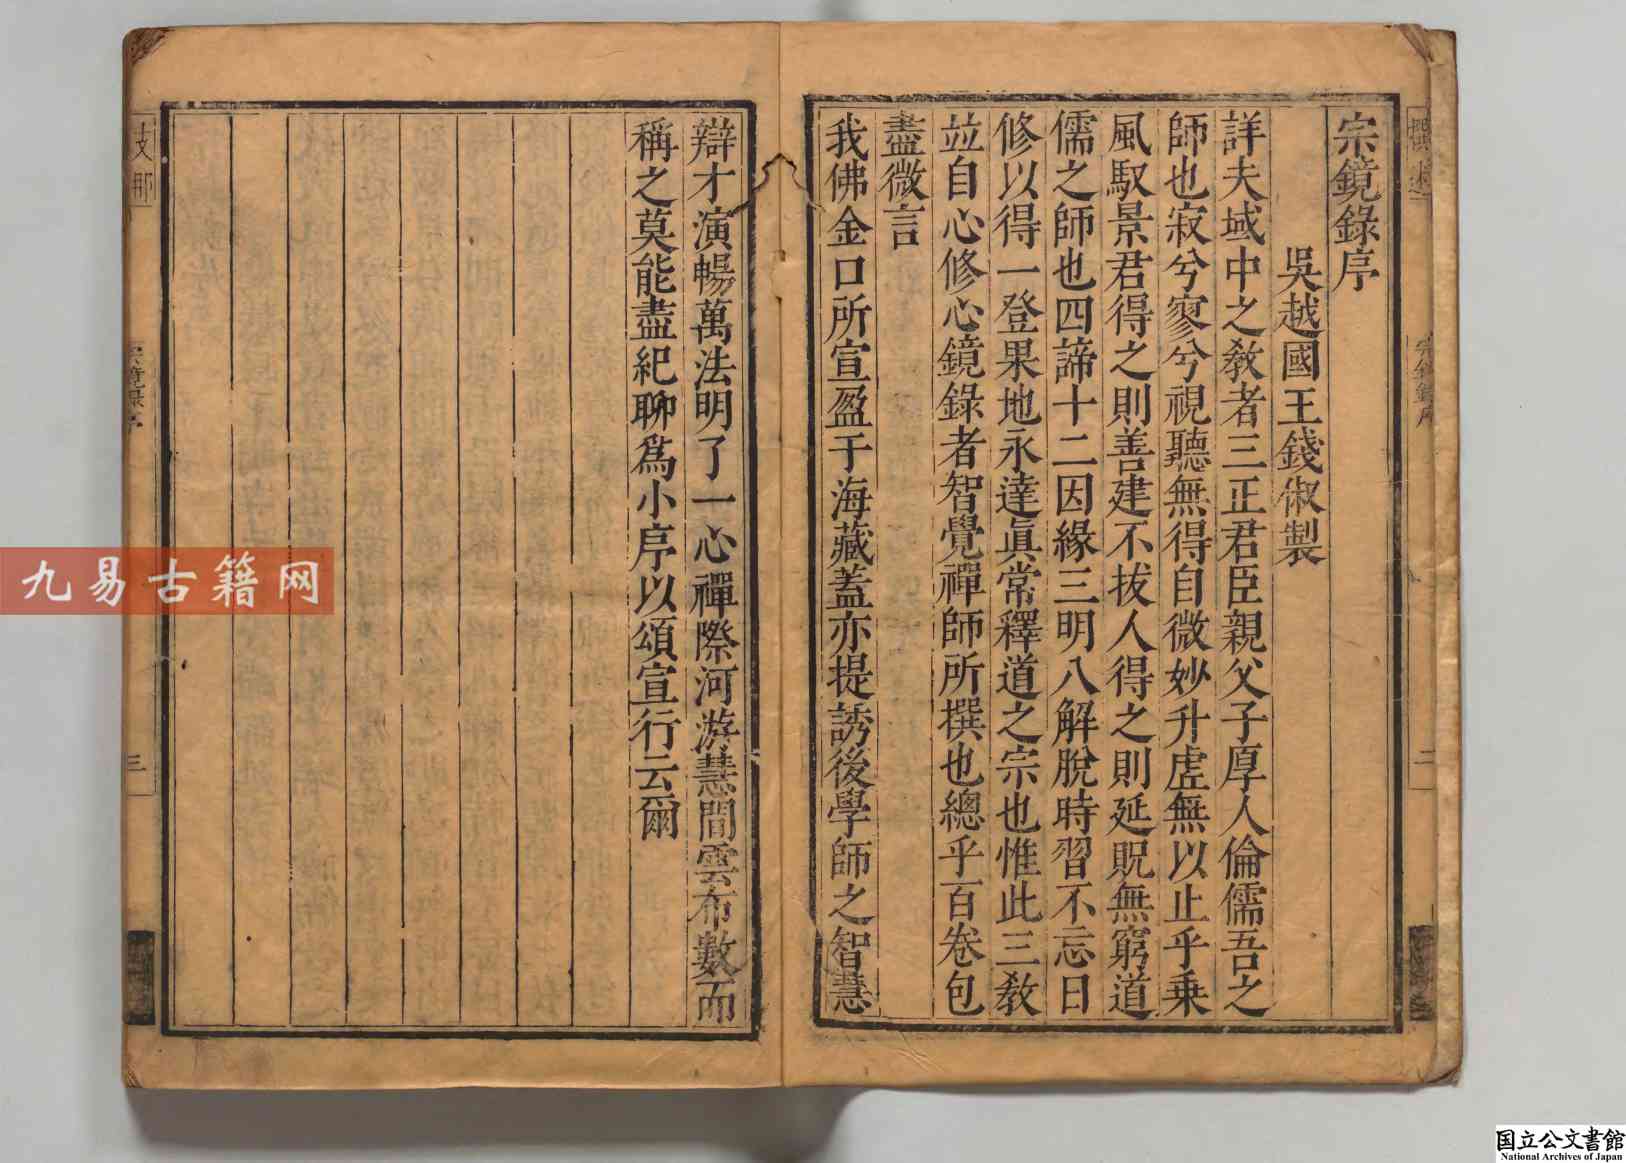 宗鏡錄序
吳越國王錢俶製
詳夫域中之敎者三正君臣親父子厚人倫儒吾之
師也寂兮寥兮視聽無得自微妙升虛無以止乎乘
風馭景君得之則善建不拔人得之則延貺無窮道
儒之師也四諦十二因緣三明八解脫時習不忘日
修以得一登果地永達眞常釋道之宗也惟此三敎
竝自心修心鏡錄者智覺禪師所撰也總乎百卷包
盡微言
我佛金口所宣盈于海藏蓋亦提誘後學師之智慧
辯才演暢萬法明了一心禪際河游慧間雲布數而
稱之莫能盡紀聊爲小序以頌宣行云爾
宗鏡錄序
二
支那
宗鏡錄序
三
九易古籍网
国立公文書館
National Archives of Japan